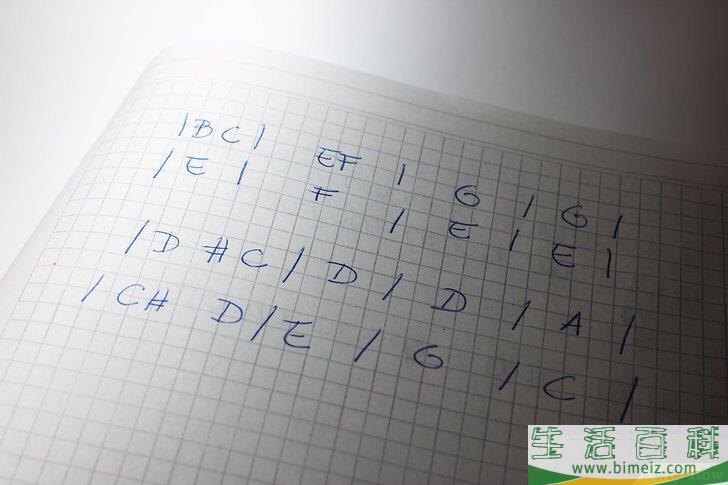 | B C | EF | G | G |
| E | F | E | E |
| D #C | D | D | A |
| C# D | E | G | C |
生活百科
www.bimeiz.com